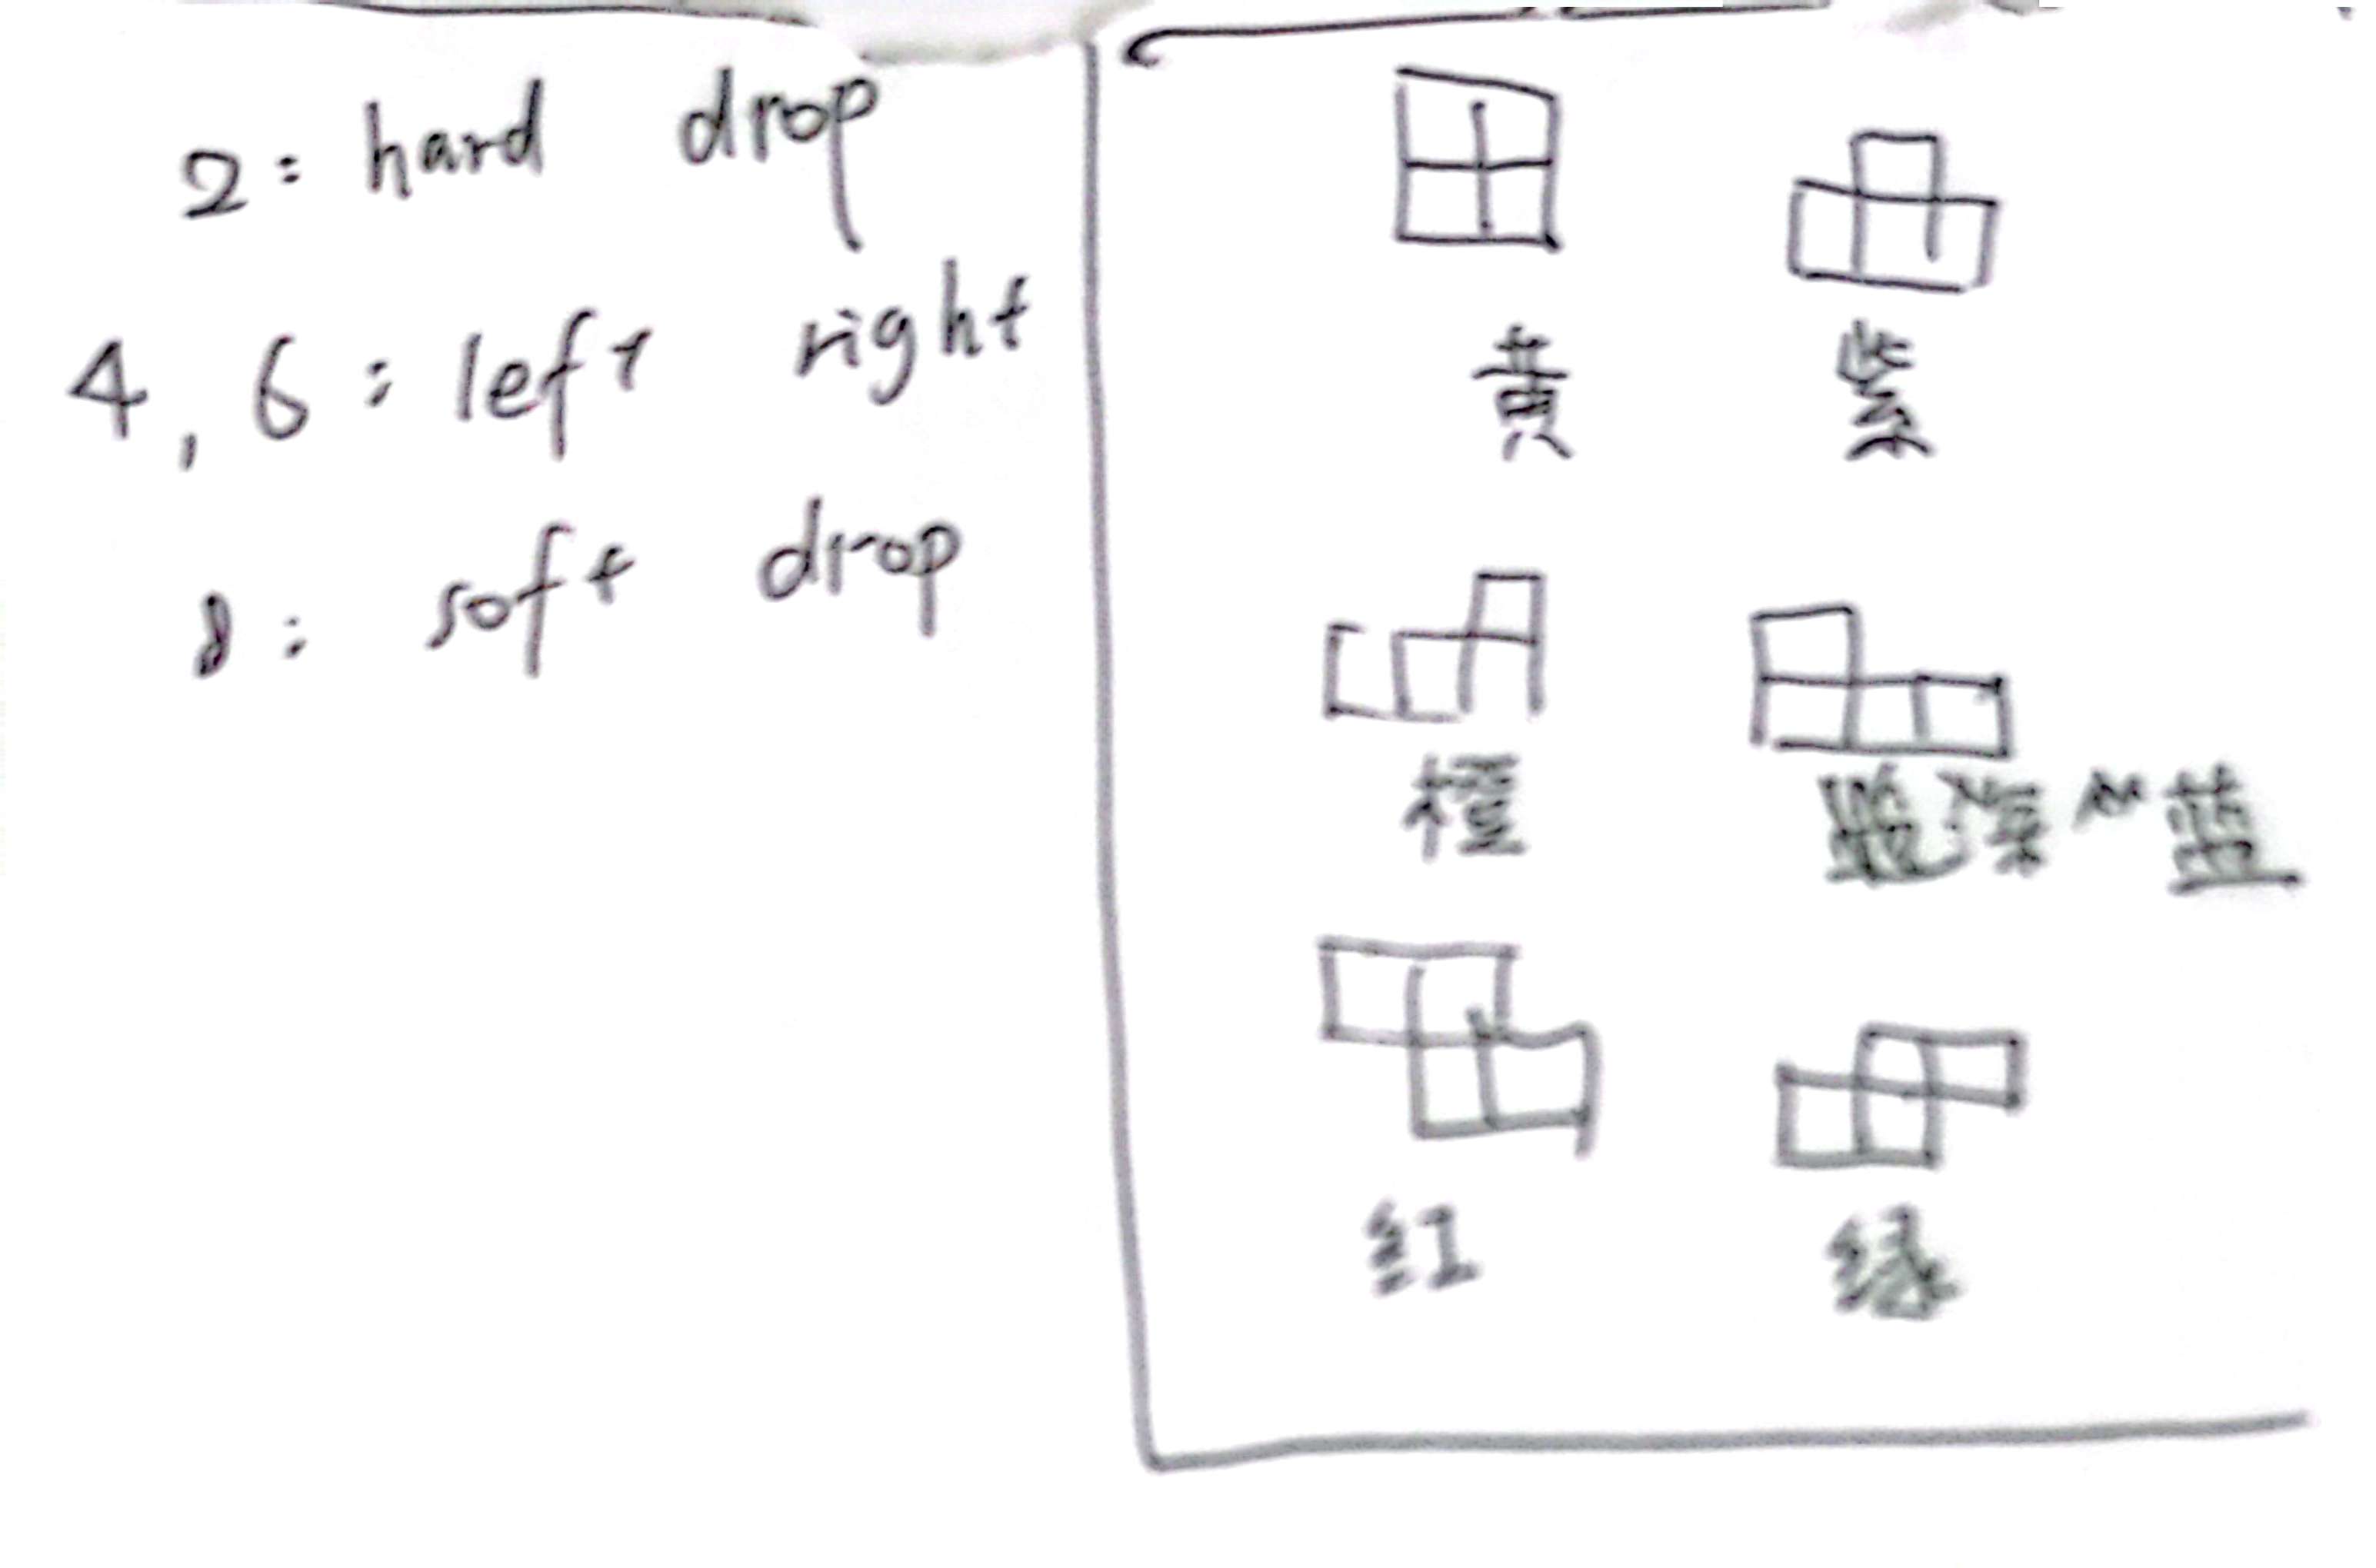 2: hard drop
4, 6: left right
8: soft drop
黄 紫
橙 深 蓝
红 绿